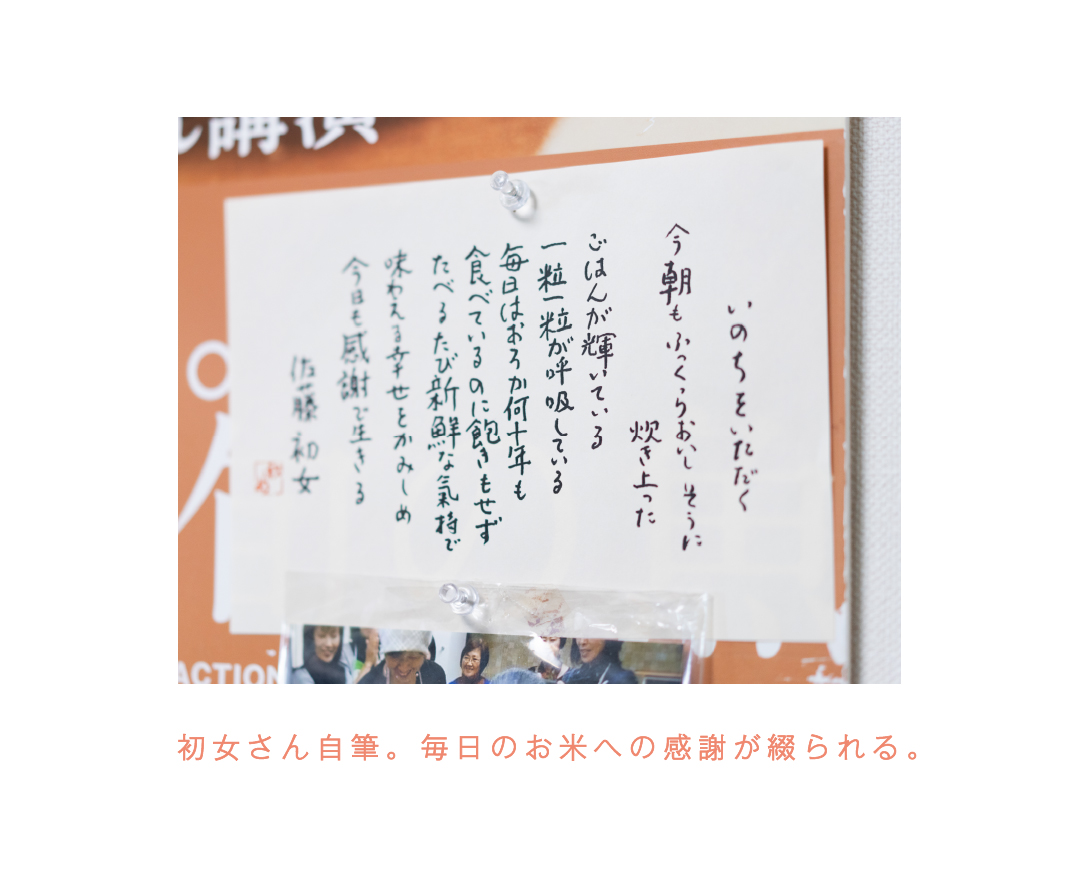 講演
いのちをいただく
今朝もふっくらおいしそうに
炊き上った
ごはんが輝いている
一粒一粒が呼吸している
毎日はおろか何十年も
食べているのに飽きもせず
たべるたび新鮮な氣持で
味わえる幸せをかみしめ
今日も感謝で生きる
佐藤初女
ACTION
初女さん自筆。毎日のお米への感謝が綴られる。